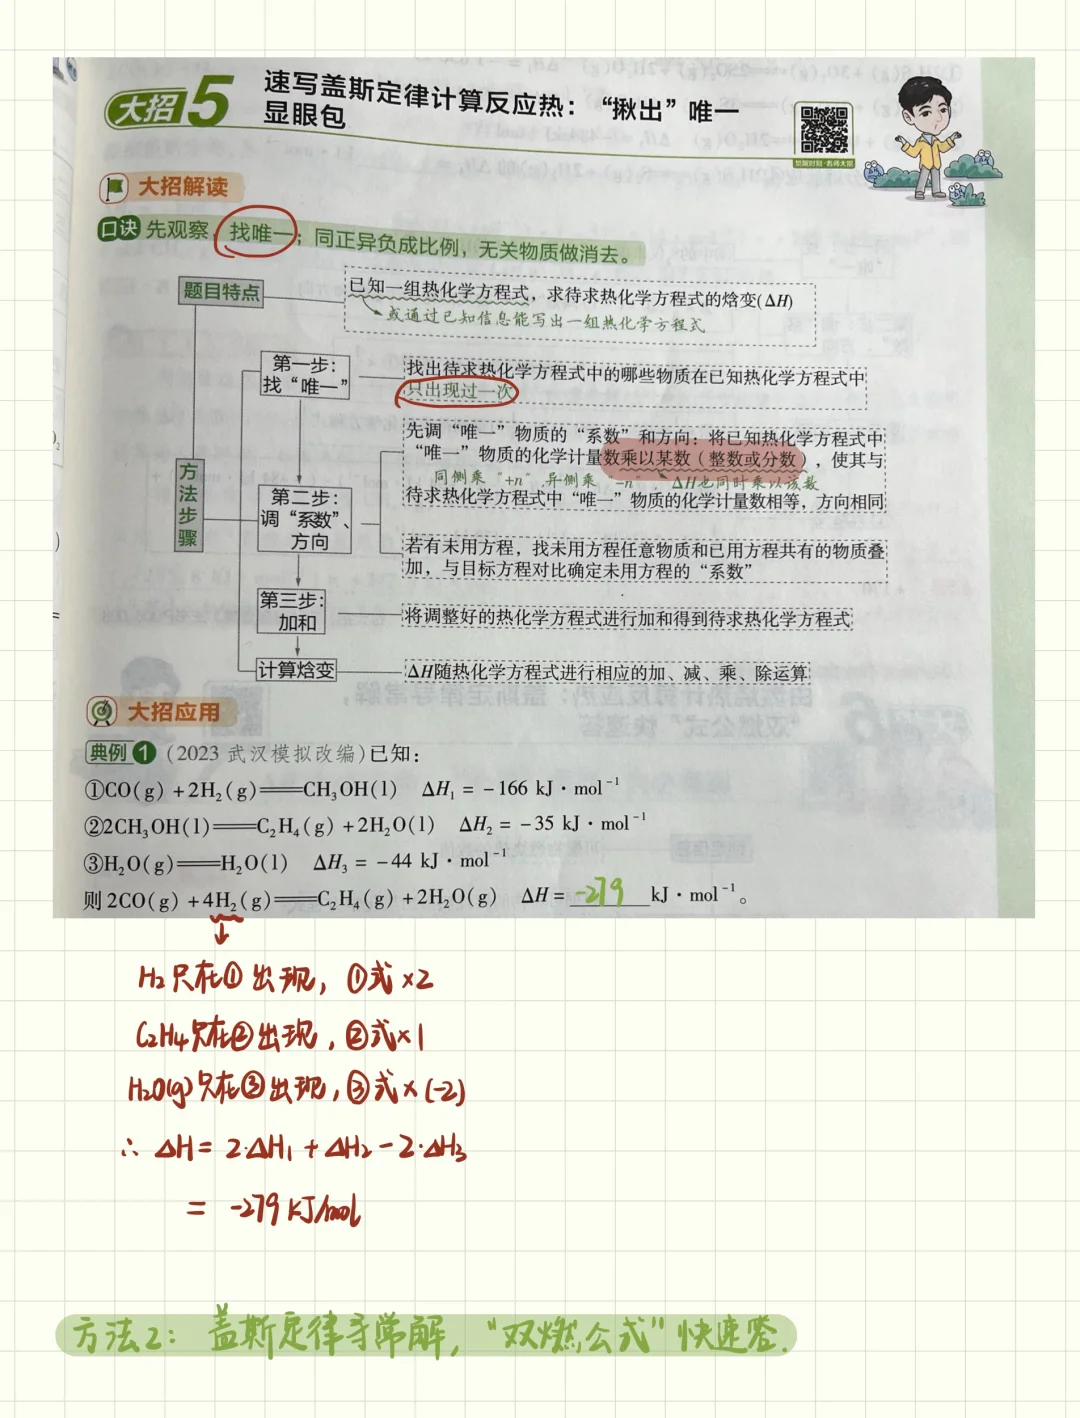 大招5 速写盖斯定律计算反应热：“揪出”唯一
显眼包
大招解读
口诀 先观察，找唯一；同正异负成比例，无关物质做消去。
题目特点
已知一组热化学方程式，求待求热化学方程式的焓变(ΔH)
或通过已知信息能写出一组热化学方程式
方法步骤
第一步：
找“唯一”
找出待求热化学方程式中的哪些物质在已知热化学方程式中
只出现过一次
第二步：
调“系数”、
方向
先调“唯一”物质的“系数”和方向：将已知热化学方程式中
“唯一”物质的化学计量数乘以某数（整数或分数），使其与
同侧乘“+n” 异侧乘“-n” ΔH也同时乘以该数
待求热化学方程式中“唯一”物质的化学计量数相等，方向相同
若有未用方程，找未用方程任意物质和已用方程共有的物质叠
加，与目标方程对比确定未用方程的“系数”
第三步：
加和
将调整好的热化学方程式进行加和得到待求热化学方程式
计算焓变
ΔH随热化学方程式进行相应的加、减、乘、除运算
大招应用
典例1 (2023 武汉模拟改编)已知：
①CO(g)+2H₂(g)══CH₃OH(l) ΔH₁=-166 kJ·mol⁻¹
②2CH₃OH(l)══C₂H₄(g)+2H₂O(l) ΔH₂=-35 kJ·mol⁻¹
③H₂O(g)══H₂O(l) ΔH₃=-44 kJ·mol⁻¹
则2CO(g)+4H₂(g)══C₂H₄(g)+2H₂O(g) ΔH=-279 kJ·mol⁻¹。
H₂只在①出现，①式×2
C₂H₄只在②出现，②式×1
H₂O(g)只在③出现，③式×(-2)
∴ ΔH= 2·ΔH₁+ΔH₂-2·ΔH₃
= -279 kJ/mol
方法2：盖斯定律寻常解，“双燃公式”快速答.